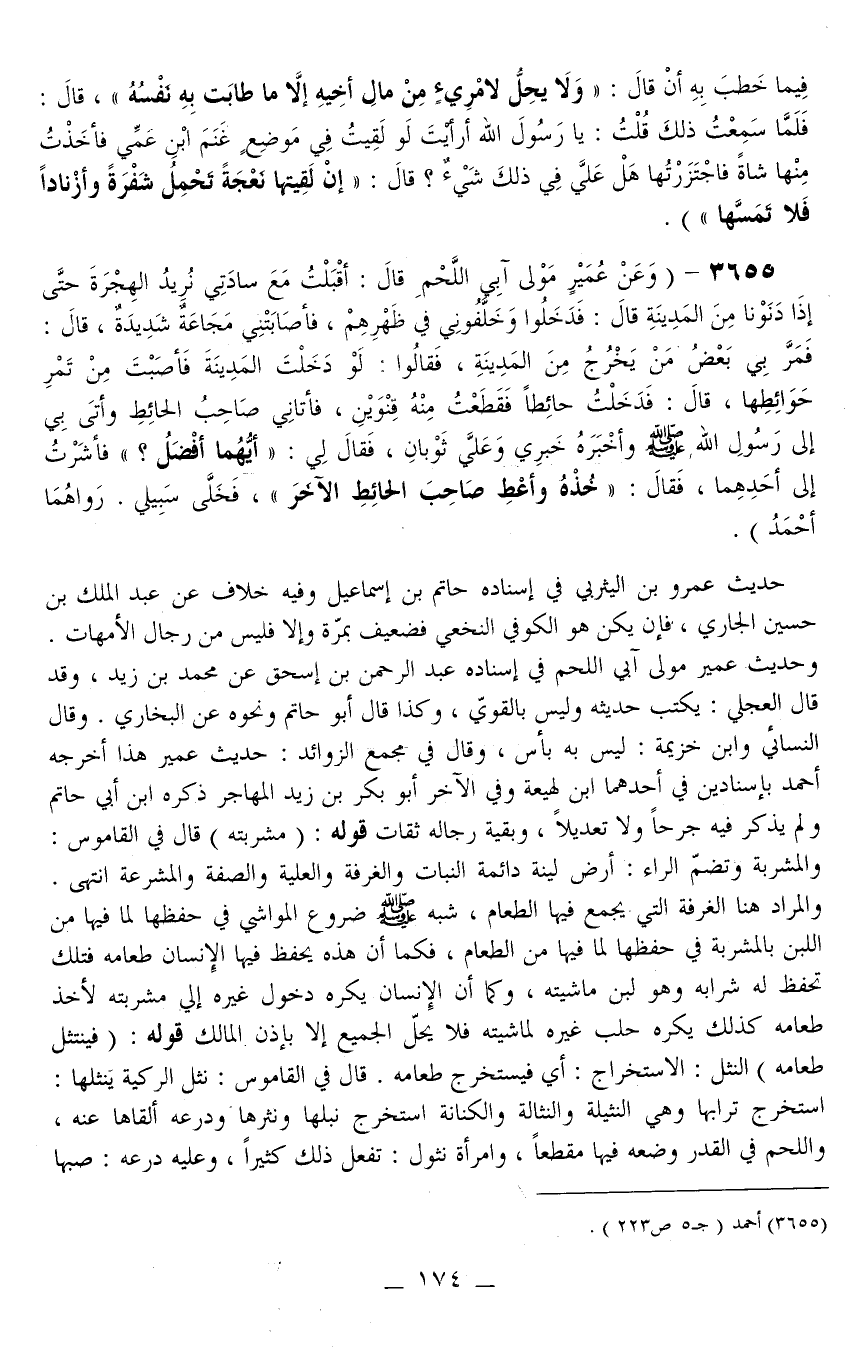 فِيما خَطبَ بِهِ أنْ قالَ : « وَلَا يحِلُّ لامْرِيءٍ مِنْ مالِ أخِيهِ إلَّا ما طابَت بِهِ نَفْسُهُ » ، قالَ :
فَلَمَّا سَمِعْتُ ذلكَ قُلْتُ : يا رَسُولَ الله أرأيْتَ لَو لَقِيتُ فِي مَوضِعٍ غَنَمَ ابْنِ عَمِّي فأخَذْتُ
مِنْها شاةً فاجْتَزَرْتُها هَلْ عَليَّ فِي ذلكَ شَيْءٌ ؟ قالَ : « إنْ لَقِيتها نَعْجَةً تَحْمِلُ شَفْرَةً وأزْناداً
فَلا تَمَسَّها » ) .
٣٦٥٥ – ( وَعَنْ عُمَيْرٍ مَوْلى آبي اللَّحْمِ قالَ : أقْبَلْتُ مَعَ سادَتِي نُرِيدُ الهِجْرَةَ حتَّى
إذَا دَنَوْنا مِنَ المَدِينَةِ قالَ : فَدَخَلُوا وَخَلَّفُونِي في ظَهْرِهِمْ ، فأصَابَتْنِي مَجَاعَةٌ شَدِيدَةٌ ، قالَ :
فَمَرَّ بِي بَعْضُ مَنْ يَخْرُجُ مِنَ المَدِينَةِ ، فَقالُوا : لَوْ دَخَلْتَ المَدِينَةَ فأصَبْتَ مِنْ تَمْرِ
حَوَائِطِها ، قالَ : فَدَخَلْتُ حائِطاً فَقَطَعْتُ مِنْهُ قِنْوَيْنِ ، فأتانِي صَاحِبُ الحائِطِ وأتَى بِي
إلى رَسُولِ الله ﷺ وأخْبَرَهُ خَبرِي وَعَليَّ ثَوْبانِ ، فَقالَ لِي : « أيُّهُما أفْضَلُ ؟ » فأشَرْتُ
إلى أحَدِهِما ، فَقالَ : « خُذْهُ وأعْطِ صَاحِبَ الحائطِ الآخَرَ » ، فَخَلَّى سَبِيلي . رَواهُمَا
أحْمَدُ ) .
حديث عمرو بن اليثربي في إسناده حاتم بن إسماعيل وفيه خلاف عن عبد الملك بن
حسين الجاري ، فإن يكن هو الكوفي النخعي فضعيف بمرّة وإلا فليس من رجال الأمهات .
وحديث عمير مولى آبي اللحم في إسناده عبد الرحمن بن إسحق عن محمد بن زيد ، وقد
قال العجلي : يكتب حديثه وليس بالقويّ ، وكذا قال أبو حاتم ونحوه عن البخاري . وقال
النسائي وابن خزيمة : ليس به بأس ، وقال في مجمع الزوائد : حديث عمير هذا أخرجه
أحمد بإسنادين في أحدهما ابن لهيعة وفي الآخر أبو بكر بن زيد المهاجر ذكره ابن أبي حاتم
ولم يذكر فيه جرحاً ولا تعديلاً ، وبقية رجاله ثقات قوله : ( مشربته ) قال في القاموس :
والمشربة وتضمّ الراء : أرض لينة دائمة النبات والغرفة والعلية والصفة والمشرعة انتهى .
والمراد هنا الغرفة التي يجمع فيها الطعام ، شبه ﷺ ضروع المواشي في حفظها لما فيها من
اللبن بالمشربة في حفظها لما فيها من الطعام ، فكما أن هذه يحفظ فيها الإنسان طعامه فتلك
تحفظ له شرابه وهو لبن ماشيته ، وكما أن الإنسان يكره دخول غيره إلي مشربته لأخذ
طعامه كذلك يكره حلب غيره لماشيته فلا يحلّ الجميع إلا بإذن المالك قوله : ( فينتثل
طعامه ) النثل : الاستخراج : أي فيستخرج طعامه . قال في القاموس : نثل الركية يَنثلها :
استخرج ترابها وهي النثيلة والنثالة والكنانة استخرج نبلها ونثرها ودرعه ألقاها عنه ،
واللحم في القدر وضعه فيها مقطعاً ، وامرأة نثول : تفعل ذلك كثيراً ، وعليه درعه : صبها
(٣٦٥٥) أحمد ( جـ٥ ص٢٢٣ ) .
– ١٧٤ –